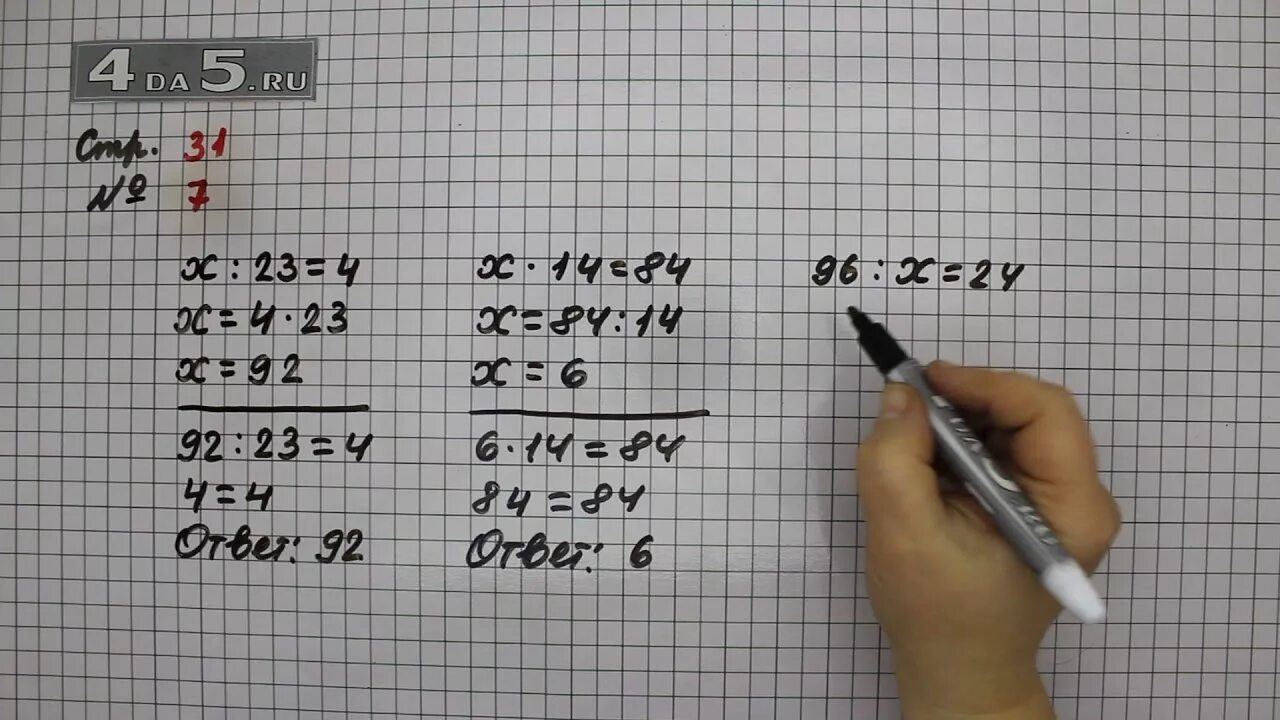 4DA5.RU
Стр. 31
№ 7
x : 23 = 4
x = 4 · 23
x = 92
92 : 23 = 4
4 = 4
Ответ: 92
x · 14 = 84
x = 84 : 14
x = 6
6 · 14 = 84
84 = 84
Ответ: 6
96 : x = 24